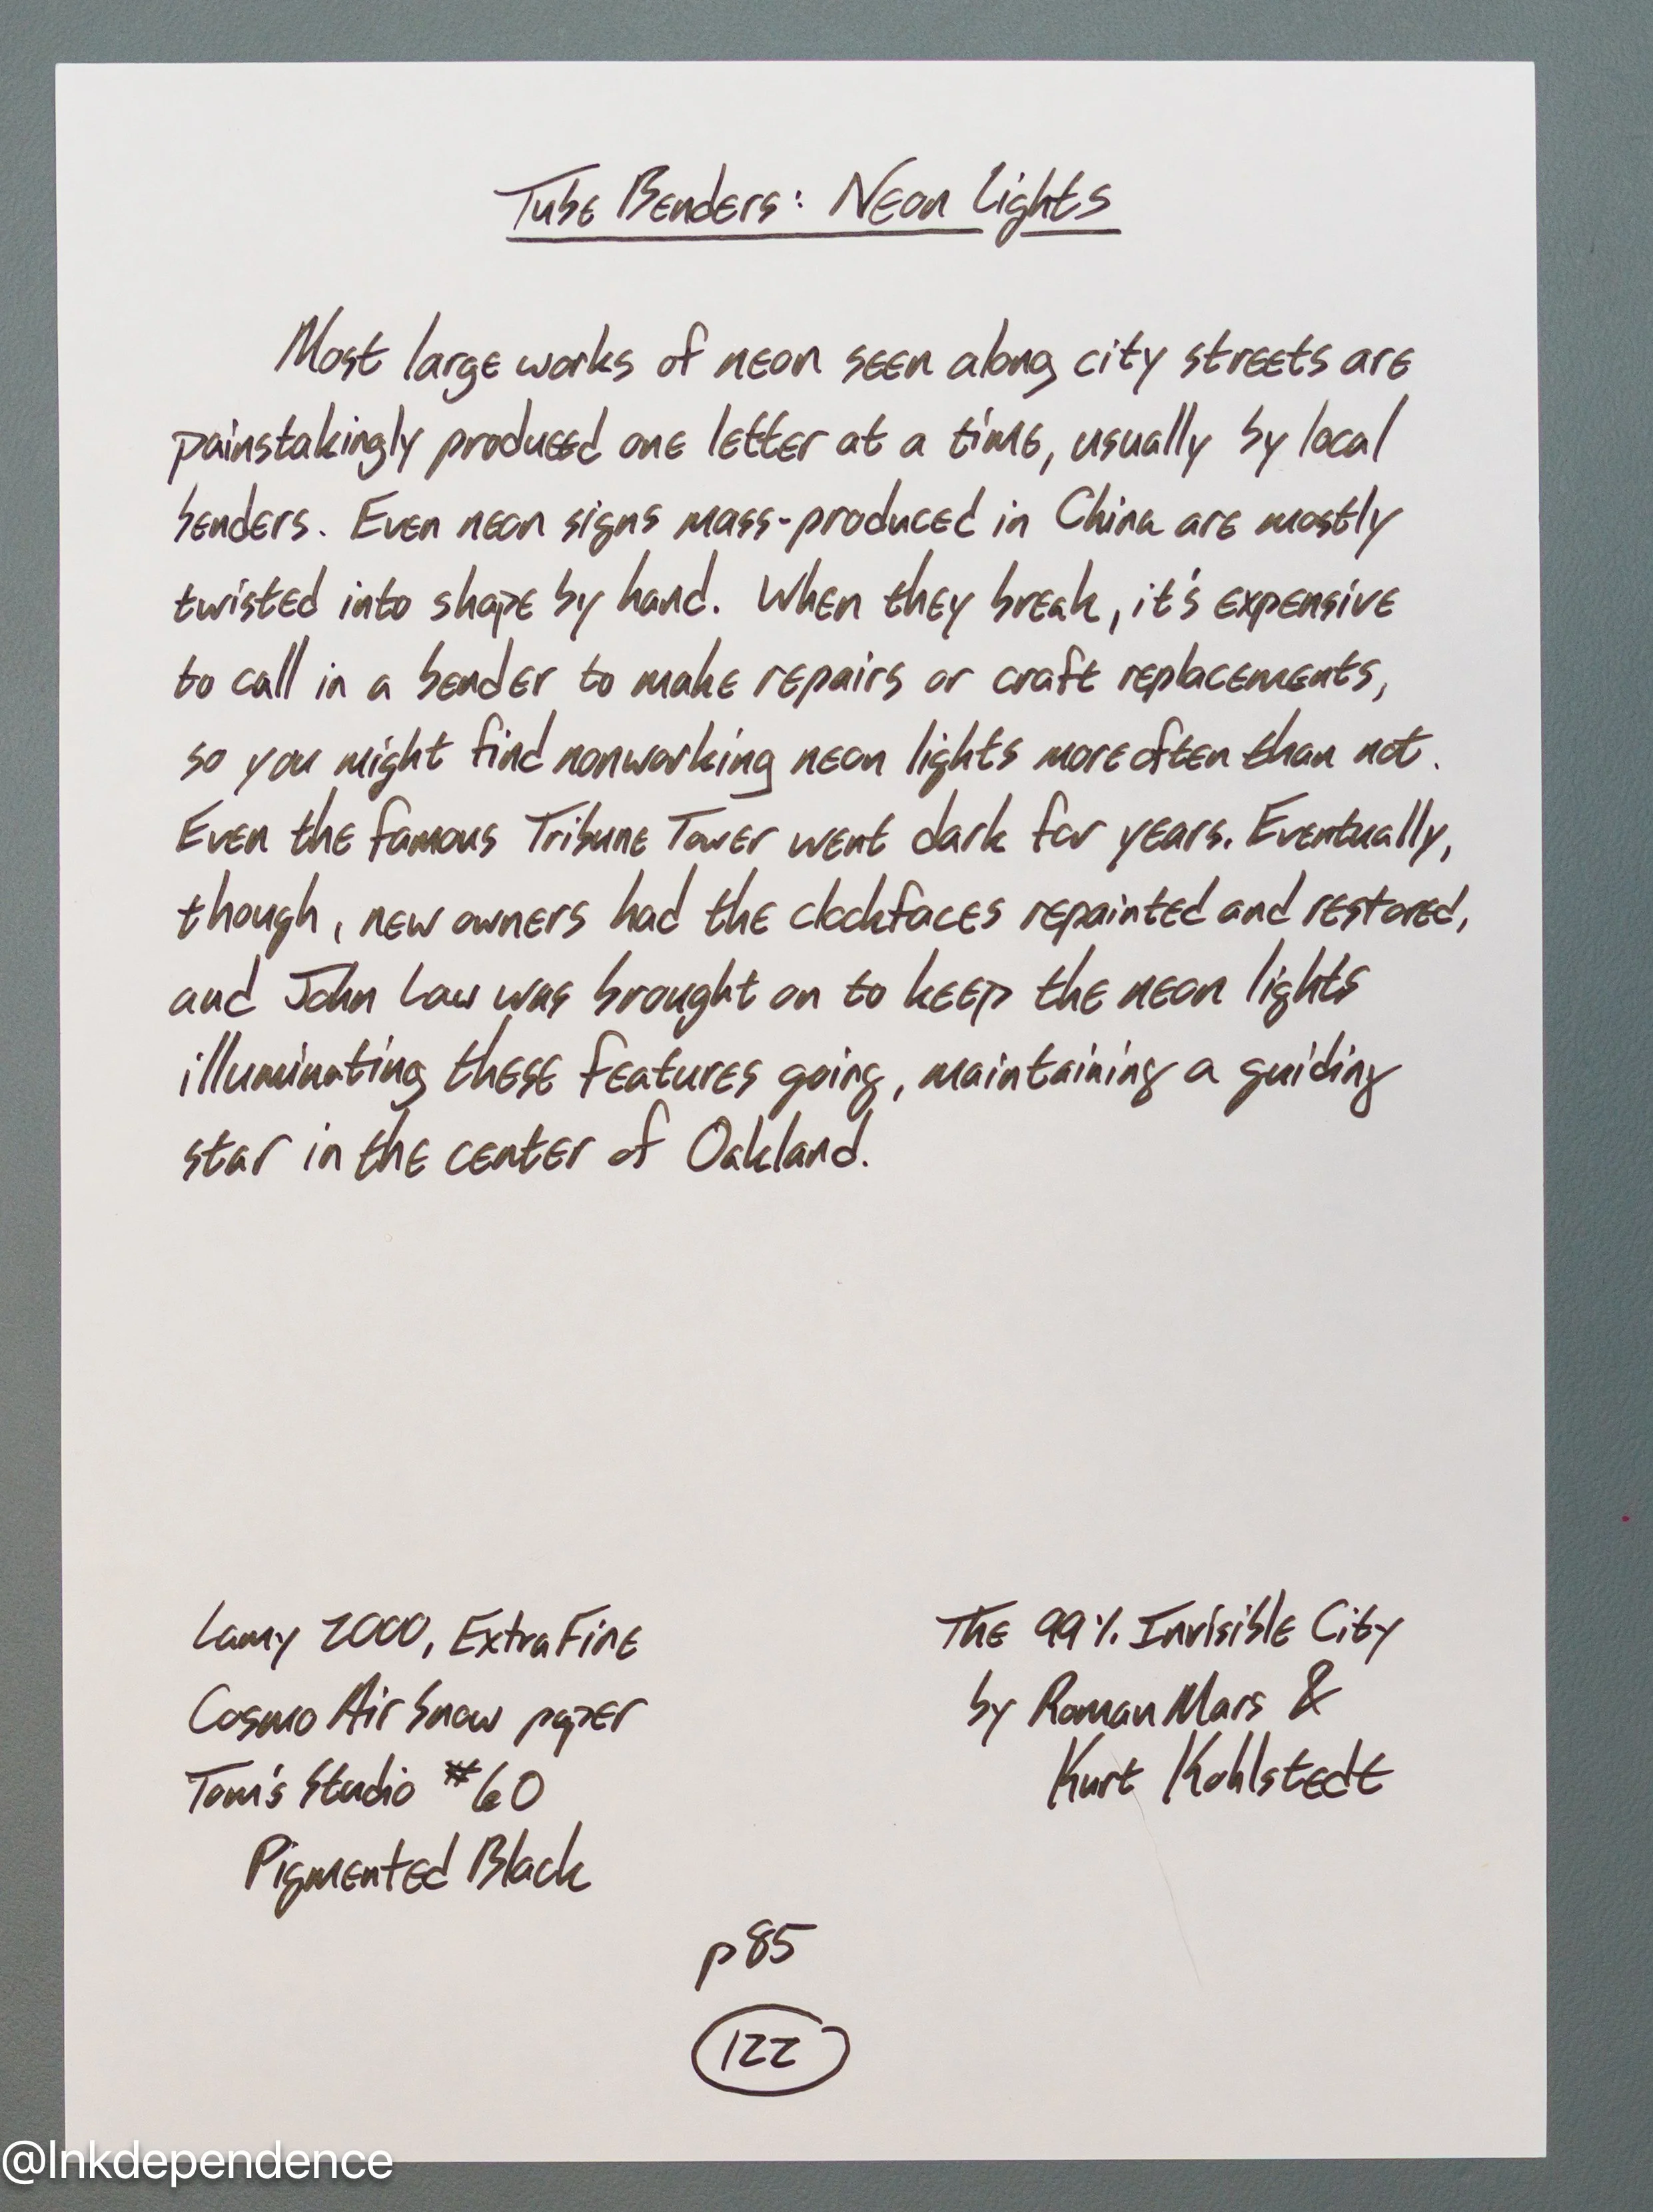 Tube Benders: Neon Lights
Most large works of neon seen along city streets are
painstakingly produced one letter at a time, usually by local
benders. Even neon signs mass-produced in China are mostly
twisted into shape by hand. When they break, it's expensive
to call in a bender to make repairs or craft replacements,
so you might find nonworking neon lights more often than not.
Even the famous Tribune Tower went dark for years. Eventually,
though, new owners had the clockfaces repainted and restored,
and John Law was brought on to keep the neon lights
illuminating these features going, maintaining a guiding
star in the center of Oakland.
Lamy 2000, Extra Fine
Cosmo Air Snow paper
Tom's Studio #60
Pigmented Black
The 99% Invisible City
by Roman Mars &
Kurt Kohlstedt
p85
122
@Inkdependence